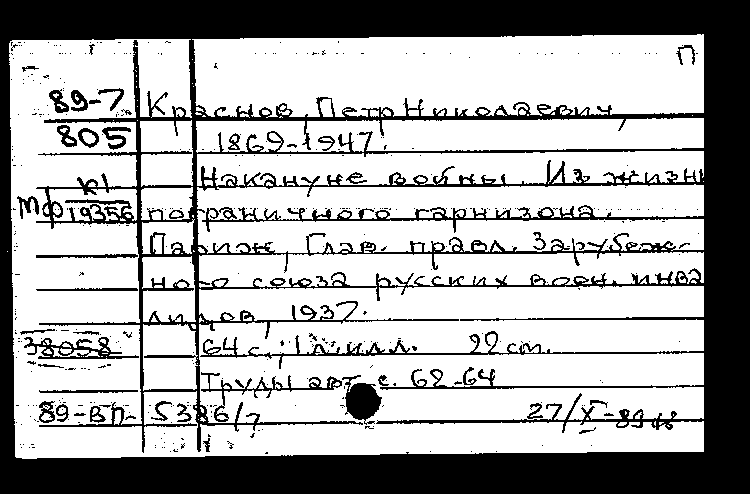 П
89-7 Краснов, Петр Николаевич,
805 1869-1947.
Накануне войны. Из жизни
К1
Мф 19356 пограничного гарнизона.
Париж, Глав. правл. Зарубеж-
ного союза русских воен. инва
лидов, 1937.
38058 64 с.; 1 л. илл. 22 cm.
Труды авт. с. 62-64
89-ВП- 5386/7 27/XI-89